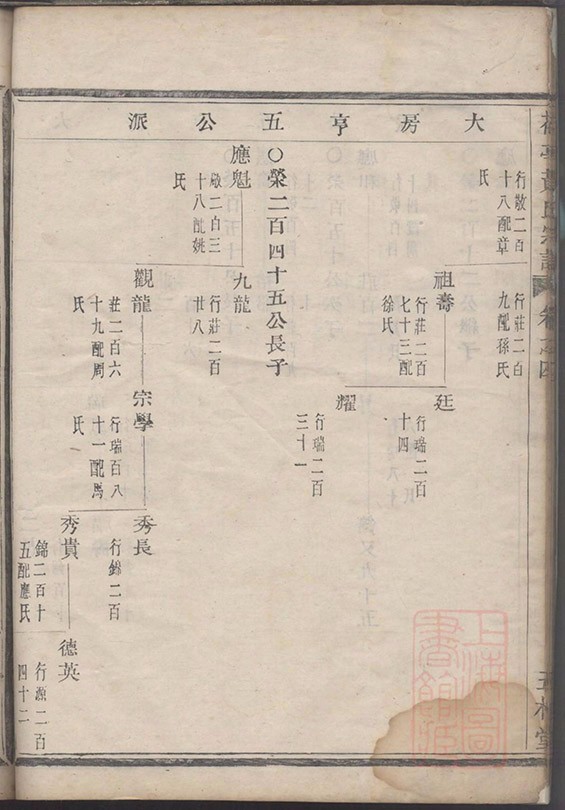 大房亨五公派
黃氏宗譜
卷之四
行敬二百
十八配章
氏
行莊二百
九配孫氏
祖壽
行莊二百
七十三配
徐氏
廷
行瑞二百
十四
耀
行瑞二百
三十一
○榮二百四十五公長子
應魁
敬二百三
十八配姚
氏
九龍
行莊二百
廿八
觀龍
莊二百六
十九配周
氏
宗學
行瑞百八
十一配馬
氏
秀長
行錦二百
秀貴
錦二百十
五配應氏
德英
行源二百
四十二
上海圖
書館藏